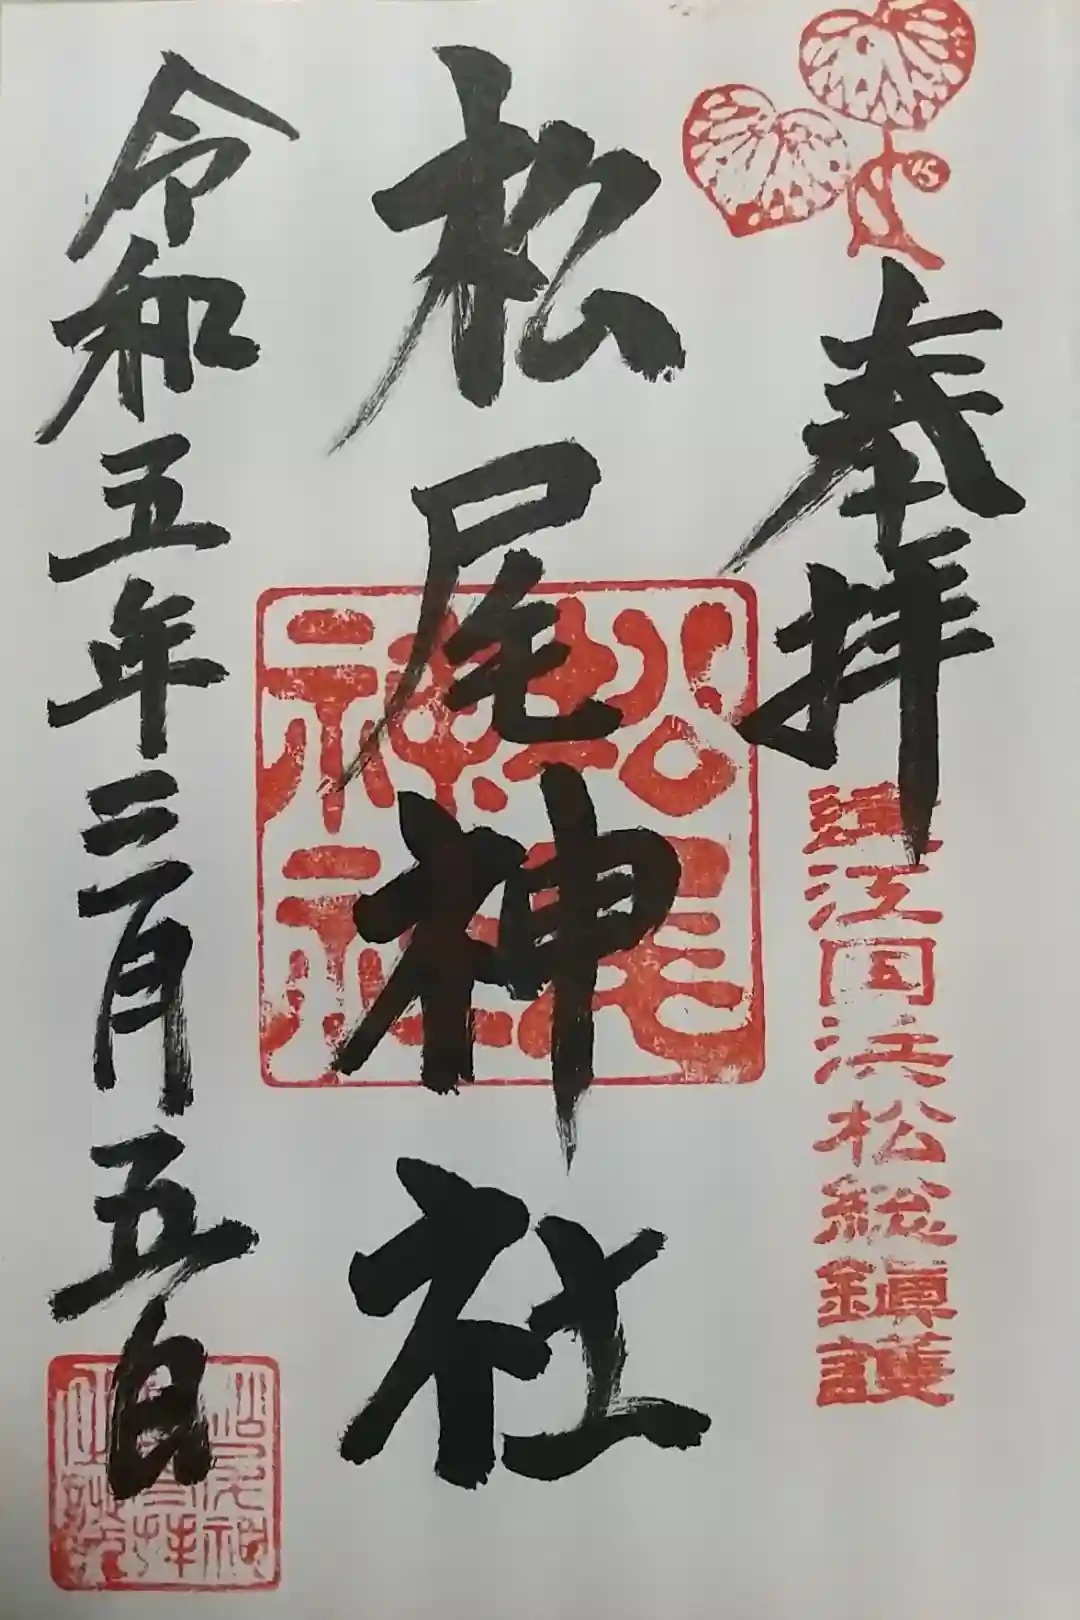 奉拝
遠江国浜松総鎮護
松尾神社
松尾神社
令和五年二月五日